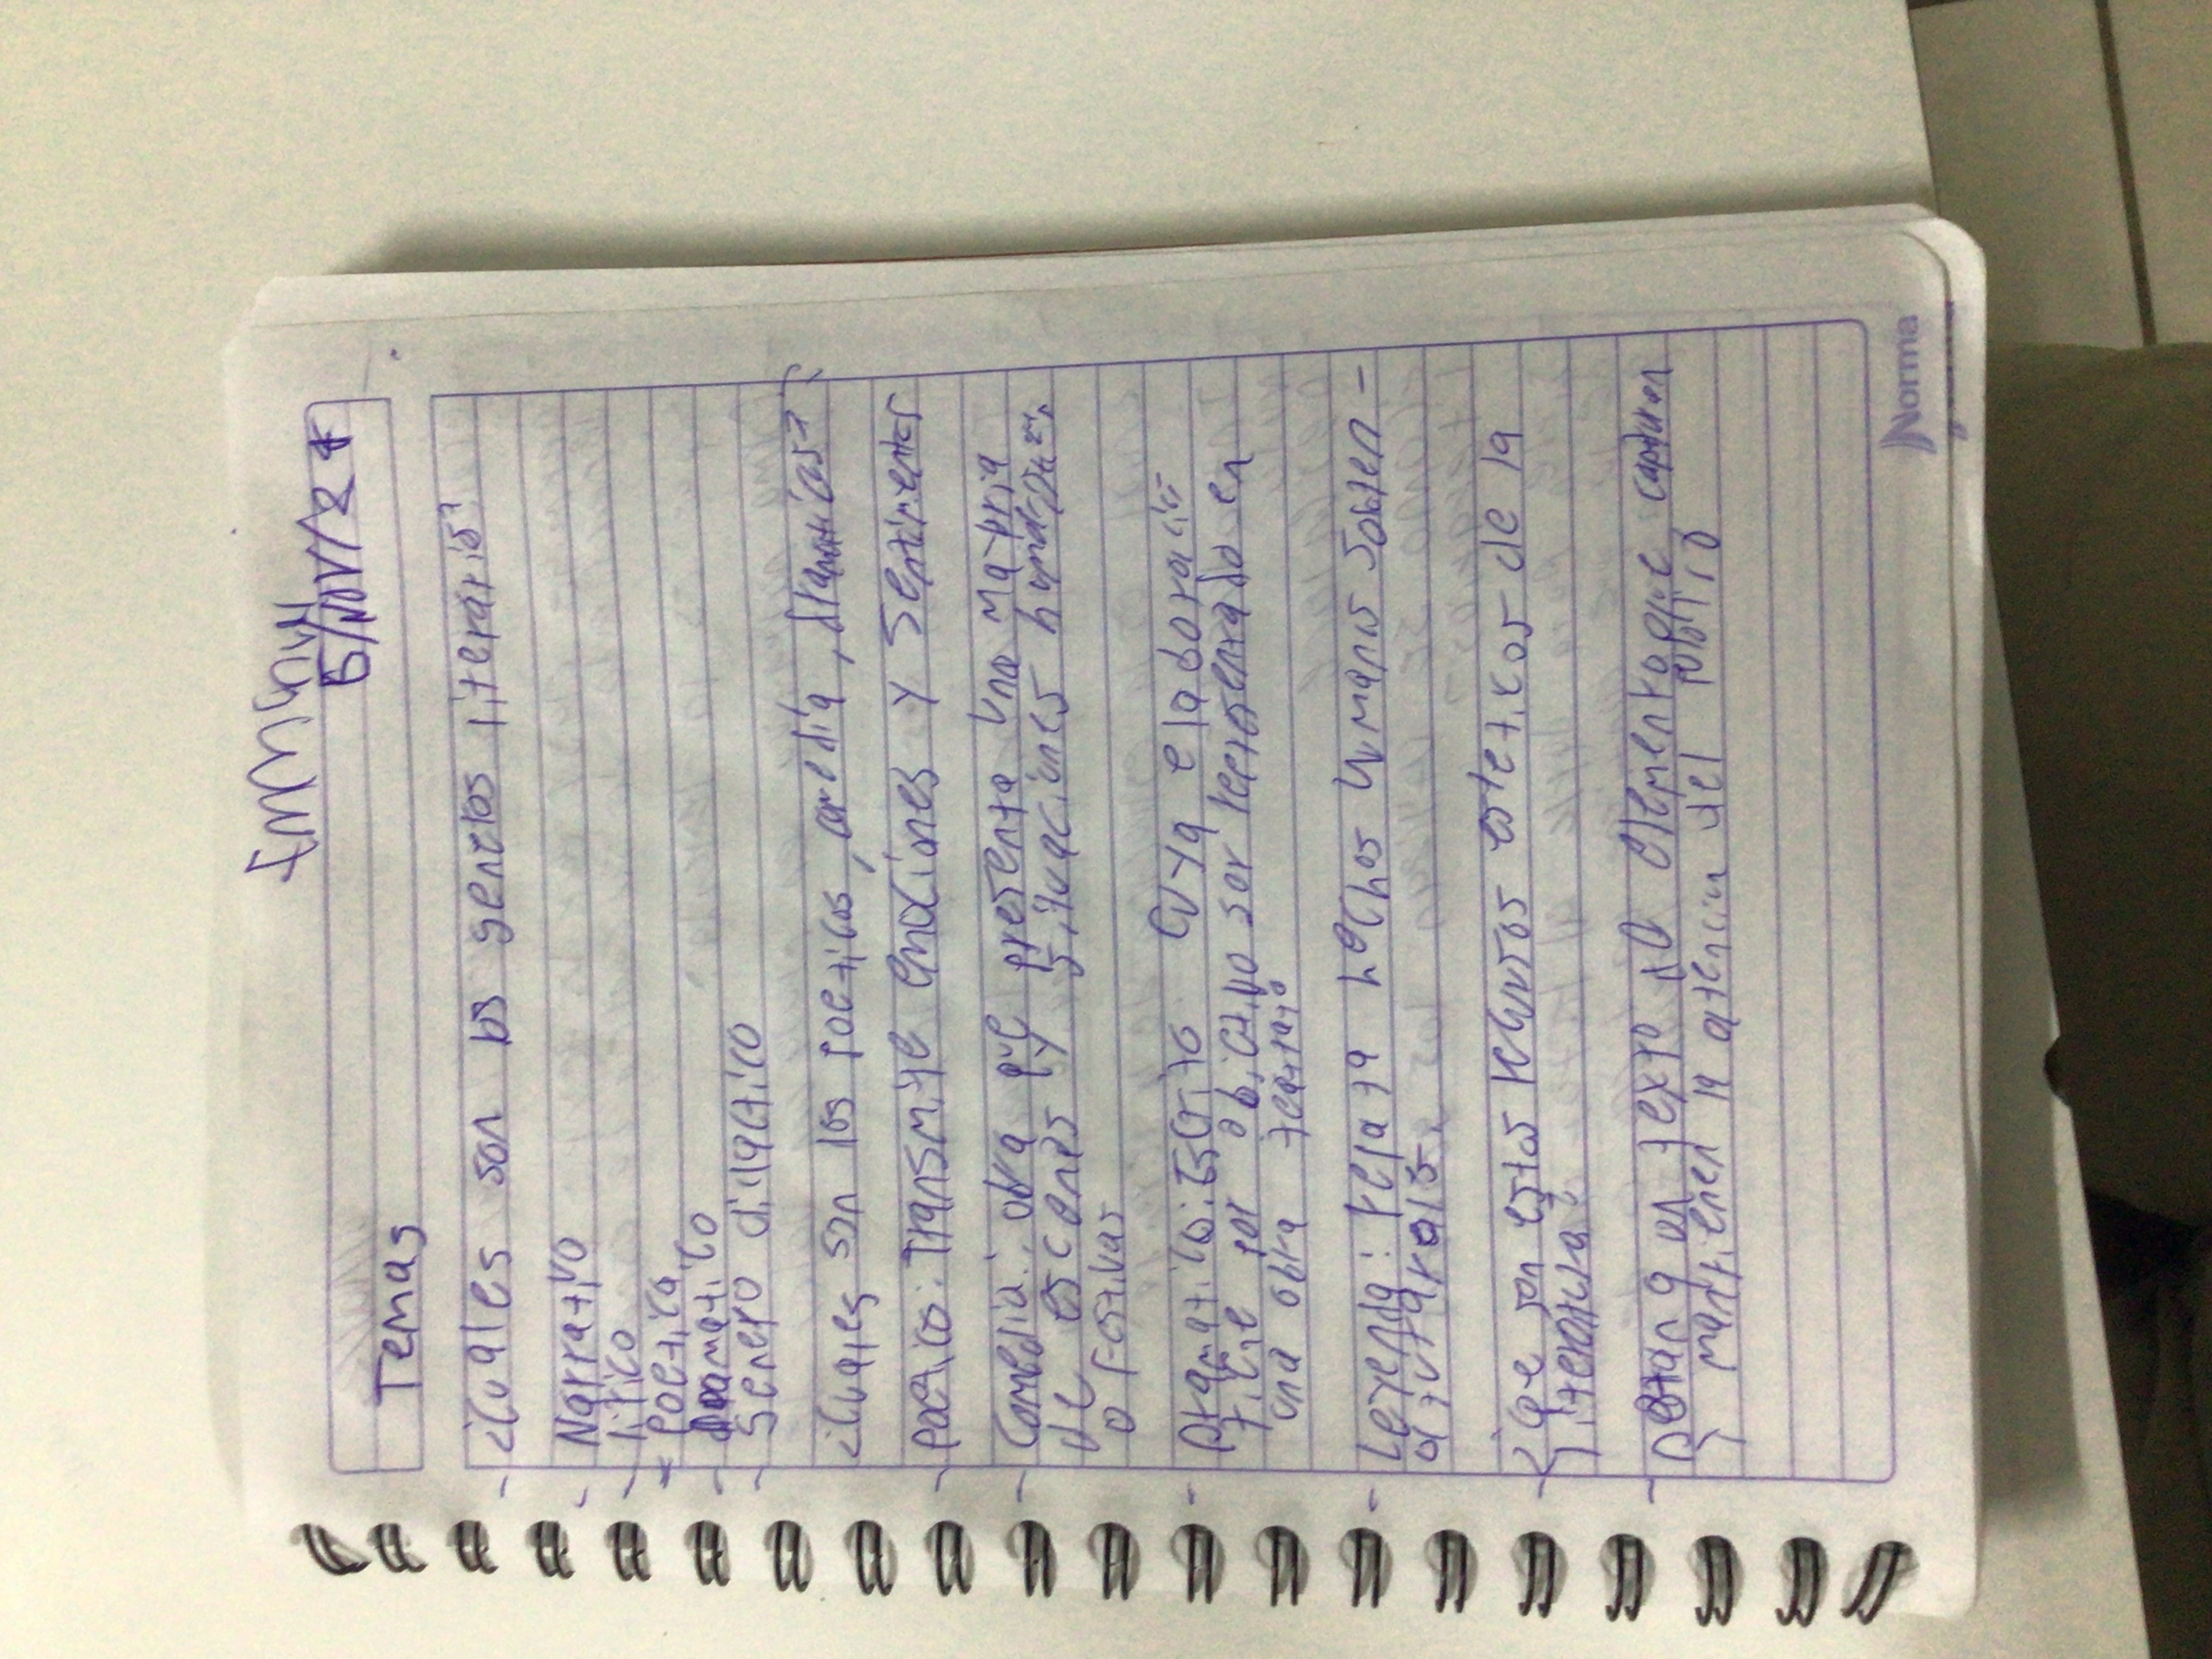 Emmanuel
5/NOV/24
Temas
- ¿Cuales son los generos literarios?
- Narrativo
- lirico
- Poetica
- Dramatico
- Genero didactico
¿Cuales son los Poeticos, comedia, dramaticos?
- Poetico: Transmite emociones y Sentimientos
- Comedia: obra que presenta una mayoria
de escenas y situaciones humoristicas
o Festivas
- Dramatico: Escrito cuya elaboracion
tiene por objetivo ser representado en
una obra teatral
- Leyenda: Relata hechos humanos Sobren-
aturales.
- ¿Que son estos recursos esteticos de la
literatura?
- Dotan a un texto de elementos que capturan
y mantienen la atencion del publico
Norma